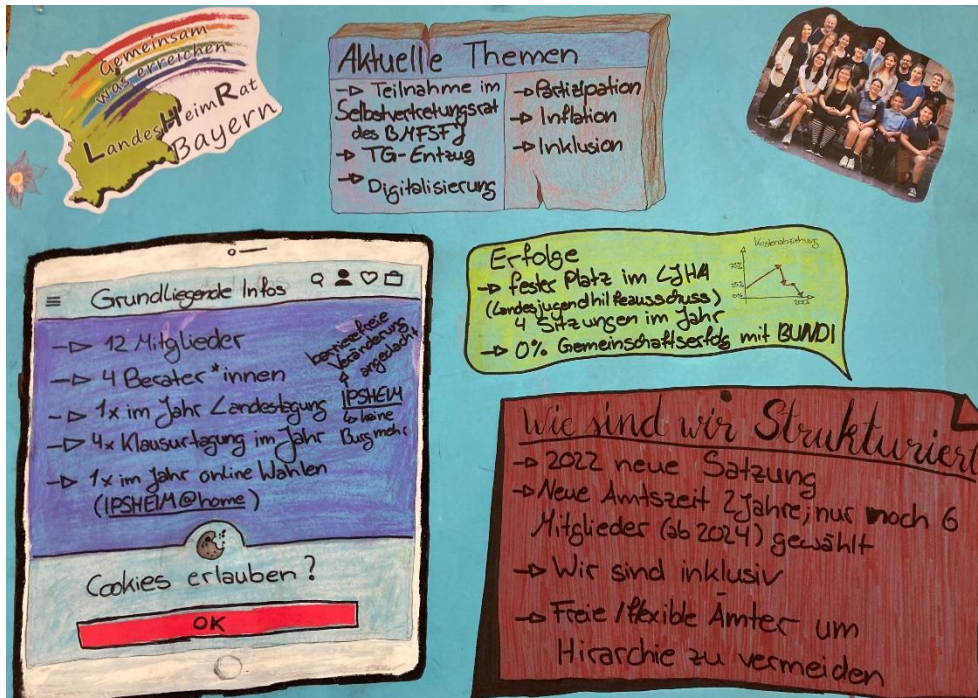 Gemeinsam
was erreichen
LandesHeimRat
Bayern
Aktuelle Themen
→ Teilnahme im
Selbstvertretungsrat
des BMFSFJ
→ TG-Entzug
→ Digitalisierung
→ Partizipation
→ Inflation
→ Inklusion
Grundliegende Infos
→ 12 Mitglieder
→ 4 Berater*innen
→ 1x im Jahr Landestagung
→ 4x Klausurtagung im Jahr
→ 1x im Jahr online Wahlen
(IPSHEIM@home)
barrierefreie
Veränderung
angedacht
IPSHEIM
↳ keine
Burg mehr
Cookies erlauben?
OK
Erfolge
→ fester Platz im LJHA
(Landesjugendhilfeausschuss)
4 Sitzungen im Jahr
→ 0% Gemeinschaftserfolg mit BUNDI
Kostenbeziehung
75%
25%
0%
2023
Wie sind wir Strukturiert
→ 2022 neue Satzung
→ Neue Amtszeit 2 Jahre, nur noch 6
Mitglieder (ab 2024) gewählt
→ Wir sind inklusiv
→ Freie/flexible Ämter um
Hirarchie zu vermeiden